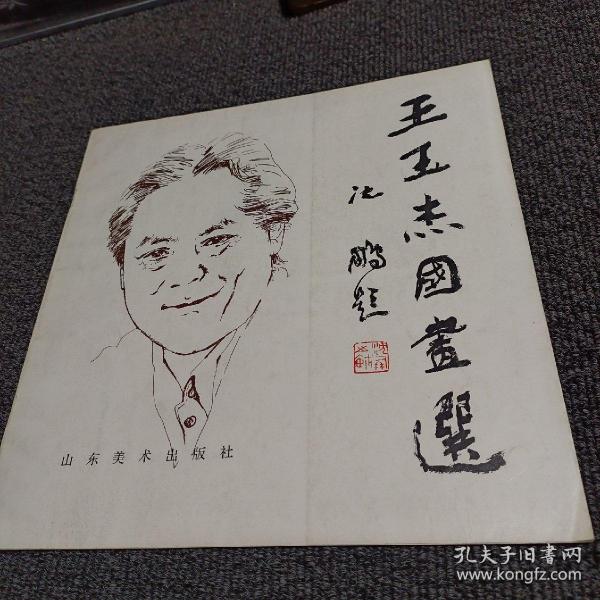 王玉杰國畫選
沈鹏题
山东美术出版社
孔夫子旧书网
www.kongfz.com